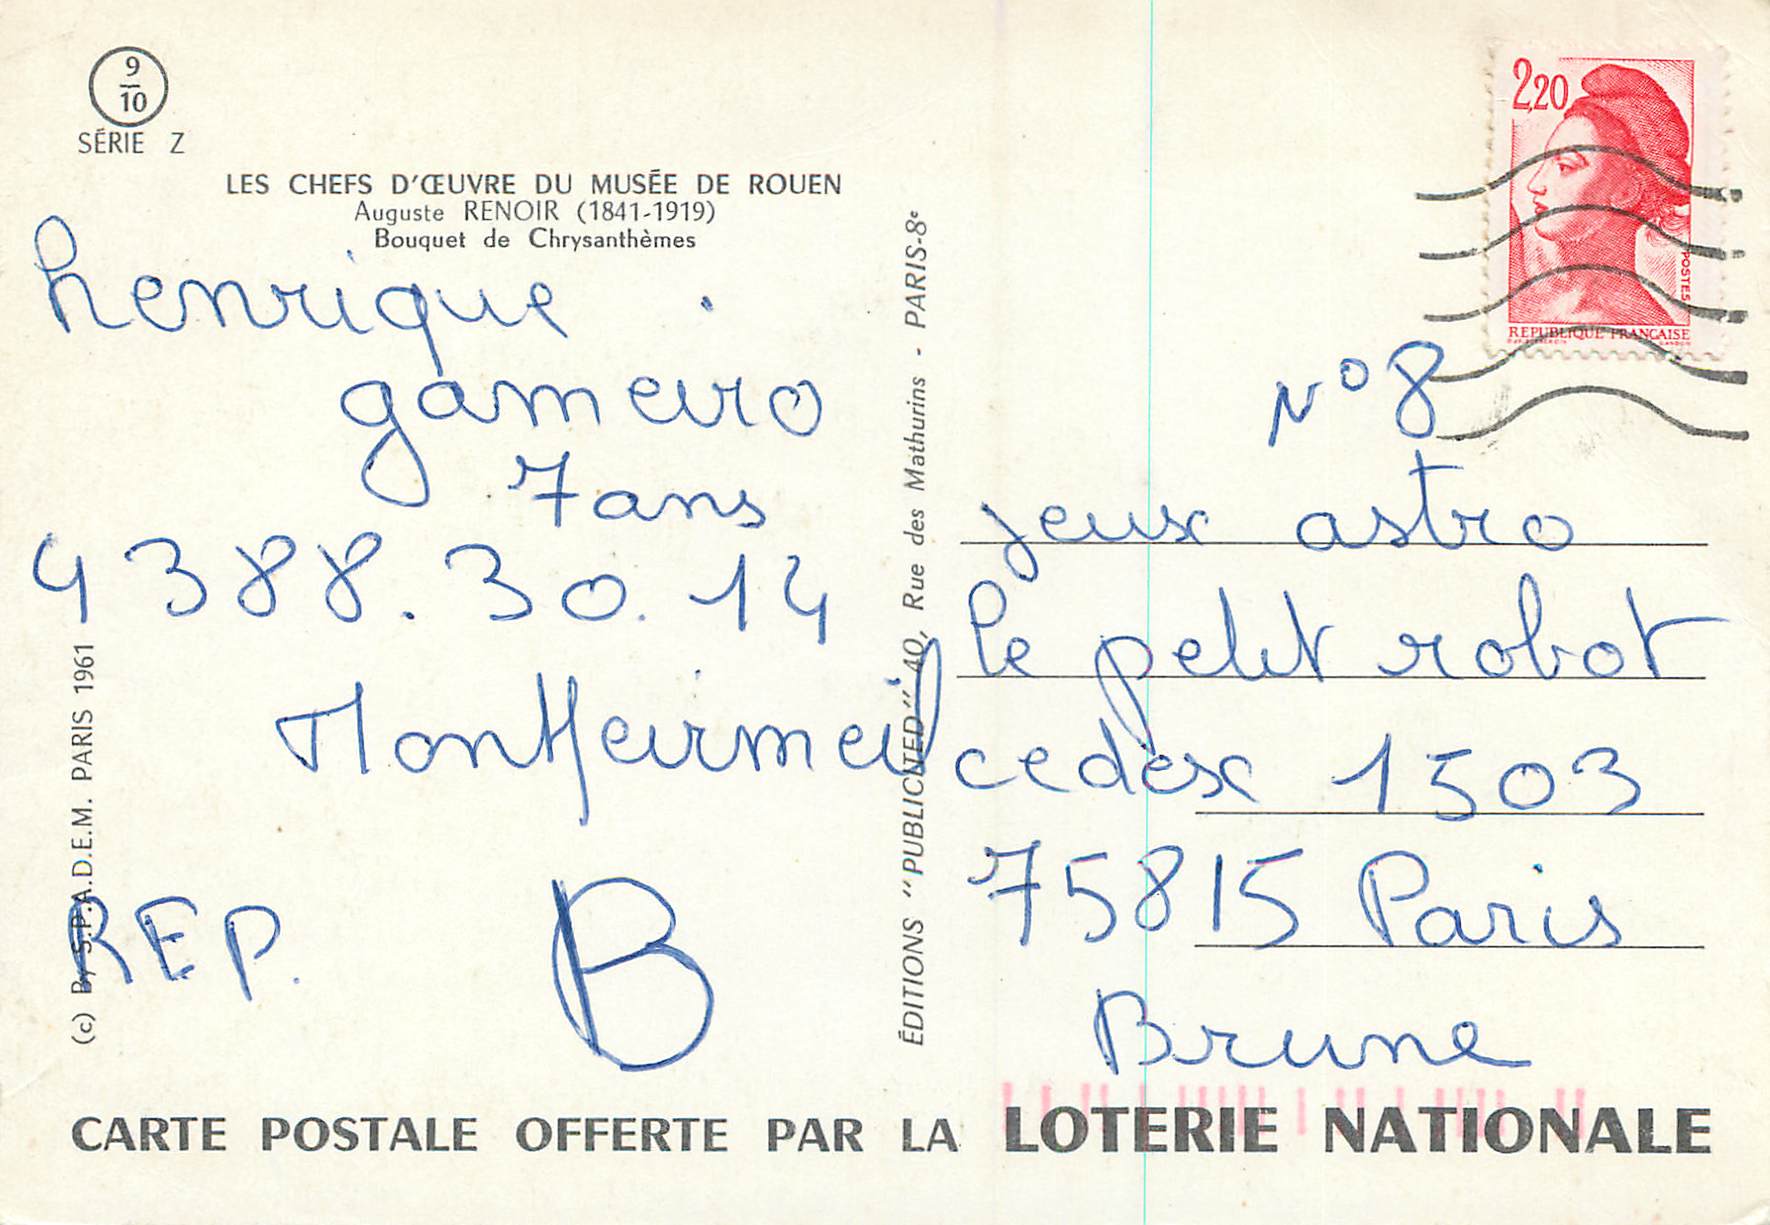 9
10
SÉRIE Z
LES CHEFS D'ŒUVRE DU MUSÉE DE ROUEN
Auguste RENOIR (1841-1919)
Bouquet de Chrysanthèmes
henrique
gameiro
7 ans
43 88.30.14
Montfeirmeil
REP. B
(c) By S.P.A.D.E.M. PARIS 1961
ÉDITIONS "PUBLICITED" 40, Rue des Mathurins - PARIS-8e
2,20
POSTES
REPUBLIQUE FRANÇAISE
N° 8
jeux astro
le petit robot
cedèx 1503
75815 Paris
Brune
CARTE POSTALE OFFERTE PAR LA LOTERIE NATIONALE